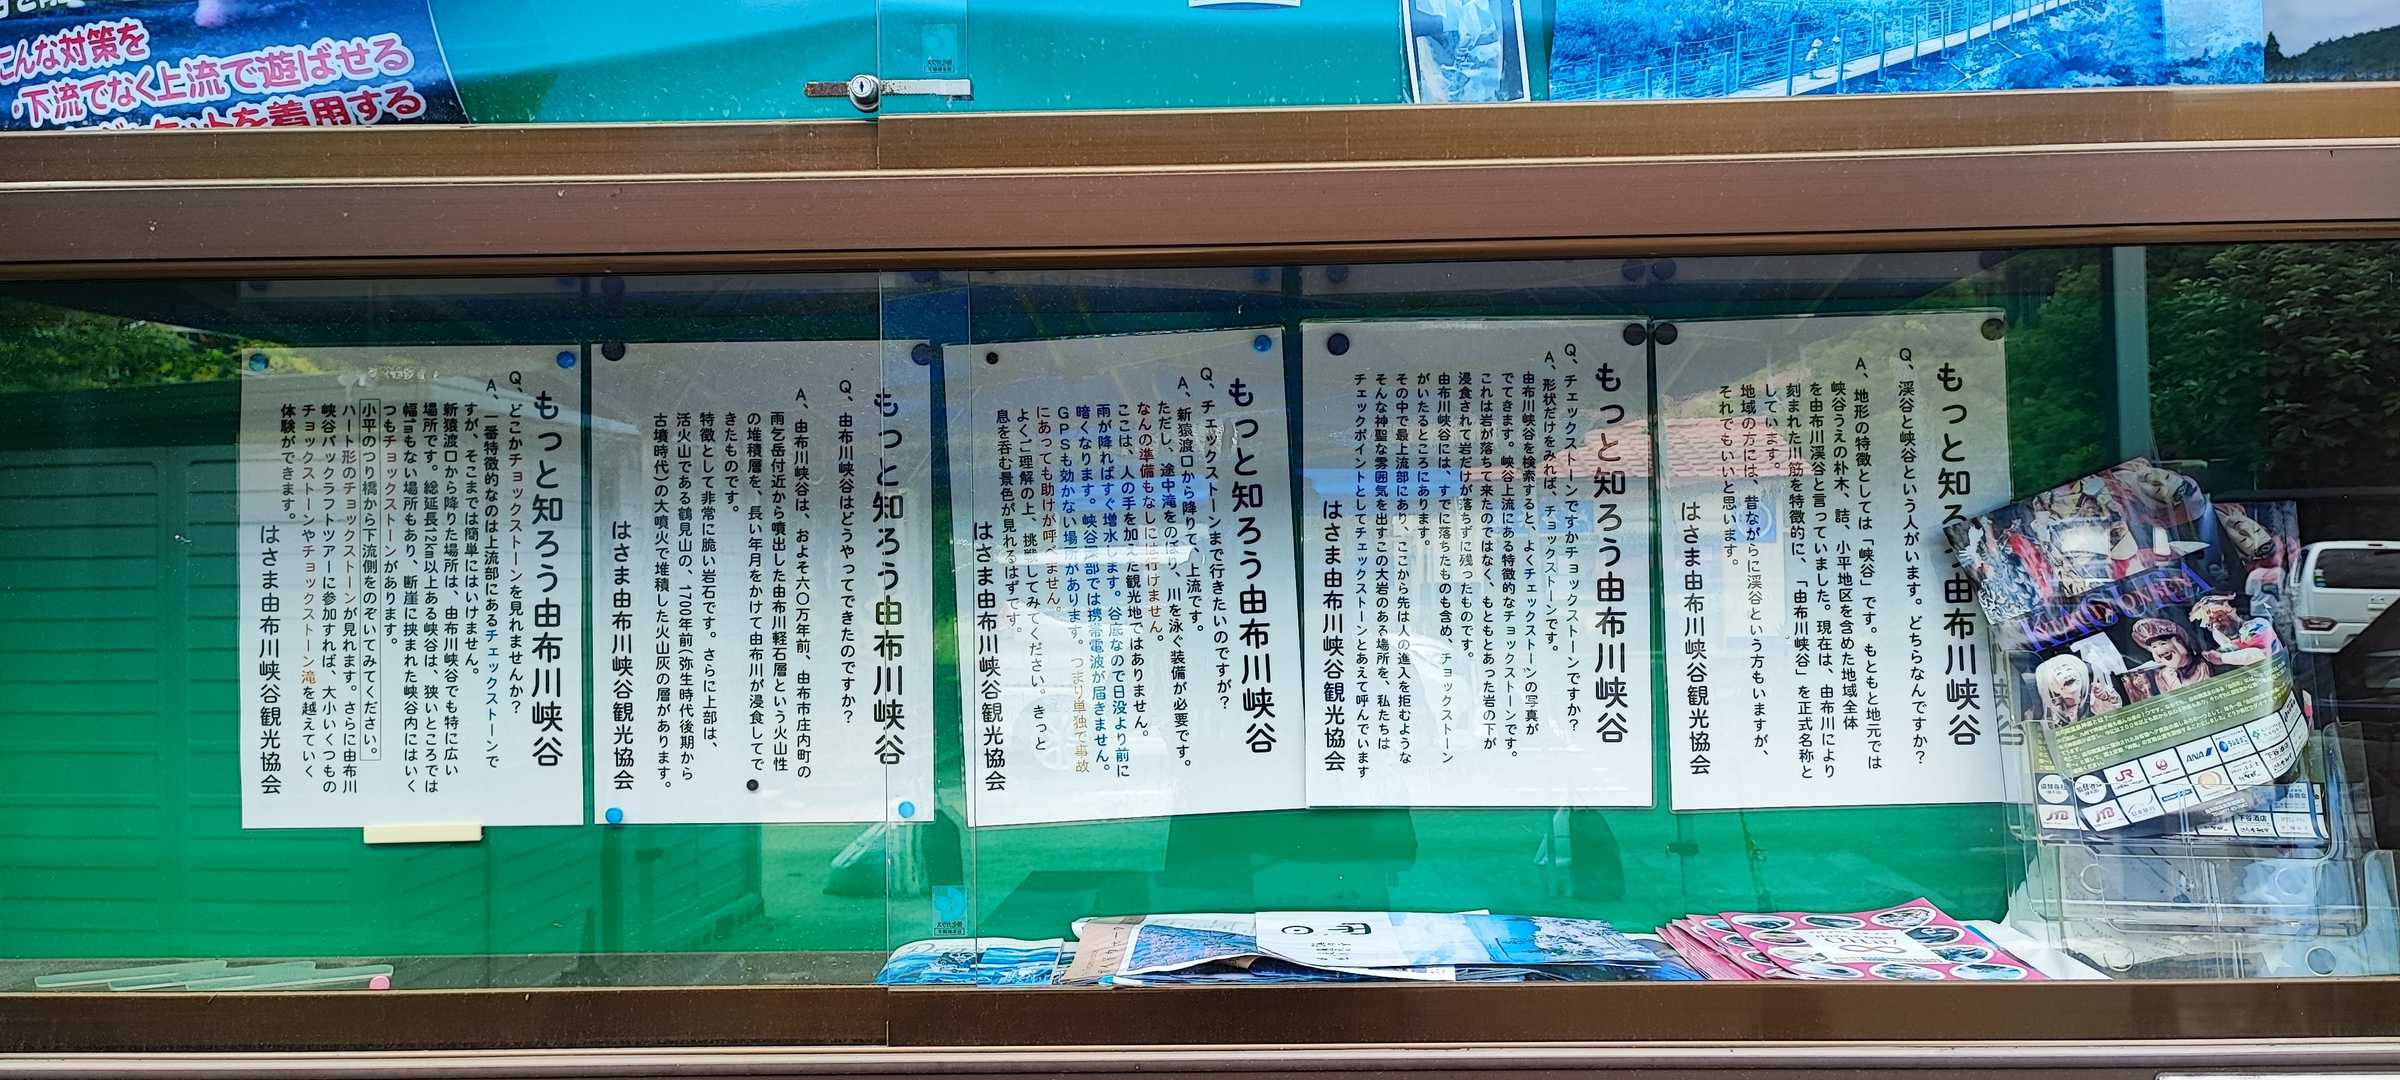 こんな対策を
・下流でなく上流で遊ばせる
を着用する
もっと知ろう由布川峡谷
Q、渓谷と峡谷という人がいます。どちらなんですか?
A、地形の特徴としては「峡谷」です。もともと地元では
峡谷うえの朴木、詰、小平地区を含めた地域全体
を由布川渓谷と言っていました。現在は、由布川により
刻まれた川筋を特徴的に、「由布川峡谷」を正式名称と
しています。
地域の方には、昔ながらに渓谷という方もいますが、
それでもいいと思います。
はさま由布川峡谷観光協会
もっと知ろう由布川峡谷
Q、チェックストーンですかチョックストーンですか?
A、形状だけをみれば、チョックストーンです。
由布川峡谷を検索すると、よくチェックストーンの写真が
でてきます。峡谷上流にある特徴的なチョックストーンです。
これは岩が落ちて来たのではなく、もともとあった岩の下が
浸食されて岩だけが落ちずに残ったものです。
由布川峡谷には、すでに落ちたものも含め、チョックストーン
がいたるところにあります。
その中で最上流部にあり、ここから先は人の進入を拒むような
そんな神聖な雰囲気を出すこの大岩のある場所を、私たちは
チェックポイントとしてチェックストーンとあえて呼んでいます
はさま由布川峡谷観光協会
もっと知ろう由布川峡谷
Q、チェックストーンまで行きたいのですが?
A、新猿渡口から降りて、上流です。
ただし、途中滝をのぼり、川を泳ぐ装備が必要です。
なんの準備もなしには行けません。
ここは、人の手を加えた観光地ではありません。
雨が降ればすぐ増水します。谷底なので日没より前に
暗くなります。峡谷深部では携帯電波が届きません。
GPSも効かない場所があります。つまり単独で事故
にあっても助けが呼べません。
よくご理解の上、挑戦してみてください。きっと
息を呑む景色が見れるはずです。
はさま由布川峡谷観光協会
もっと知ろう由布川峡谷
Q、由布川峡谷はどうやってできたのですか?
A、由布川峡谷は、およそ六〇万年前、由布市庄内町の
雨乞岳付近から噴出した由布川軽石層という火山性
の堆積層を、長い年月をかけて由布川が浸食してで
きたものです。
特徴として非常に脆い岩石です。さらに上部は、
活火山である鶴見山の、1700年前(弥生時代後期から
古墳時代)の大噴火で堆積した火山灰の層があります。
はさま由布川峡谷観光協会
もっと知ろう由布川峡谷
Q、どこかチョックストーンを見れませんか?
A、一番特徴的なのは上流部にあるチェックストーンで
すが、そこまでは簡単にはいけません。
新猿渡口から降りた場所は、由布川峡谷でも特に広い
場所です。総延長12km以上ある峡谷は、狭いところでは
幅1mもない場所もあり、断崖に挟まれた峡谷内にはいく
つもチョックストーンがあります。
小平のつり橋から下流側をのぞいてみてください。
ハート形のチョックストーンが見れます。さらに由布川
峡谷パックラフトツアーに参加すれば、大小いくつもの
チョックストーンやチョックストーン滝を越えていく
体験ができます。
はさま由布川峡谷観光協会
JR
ANA
JTB
JTB